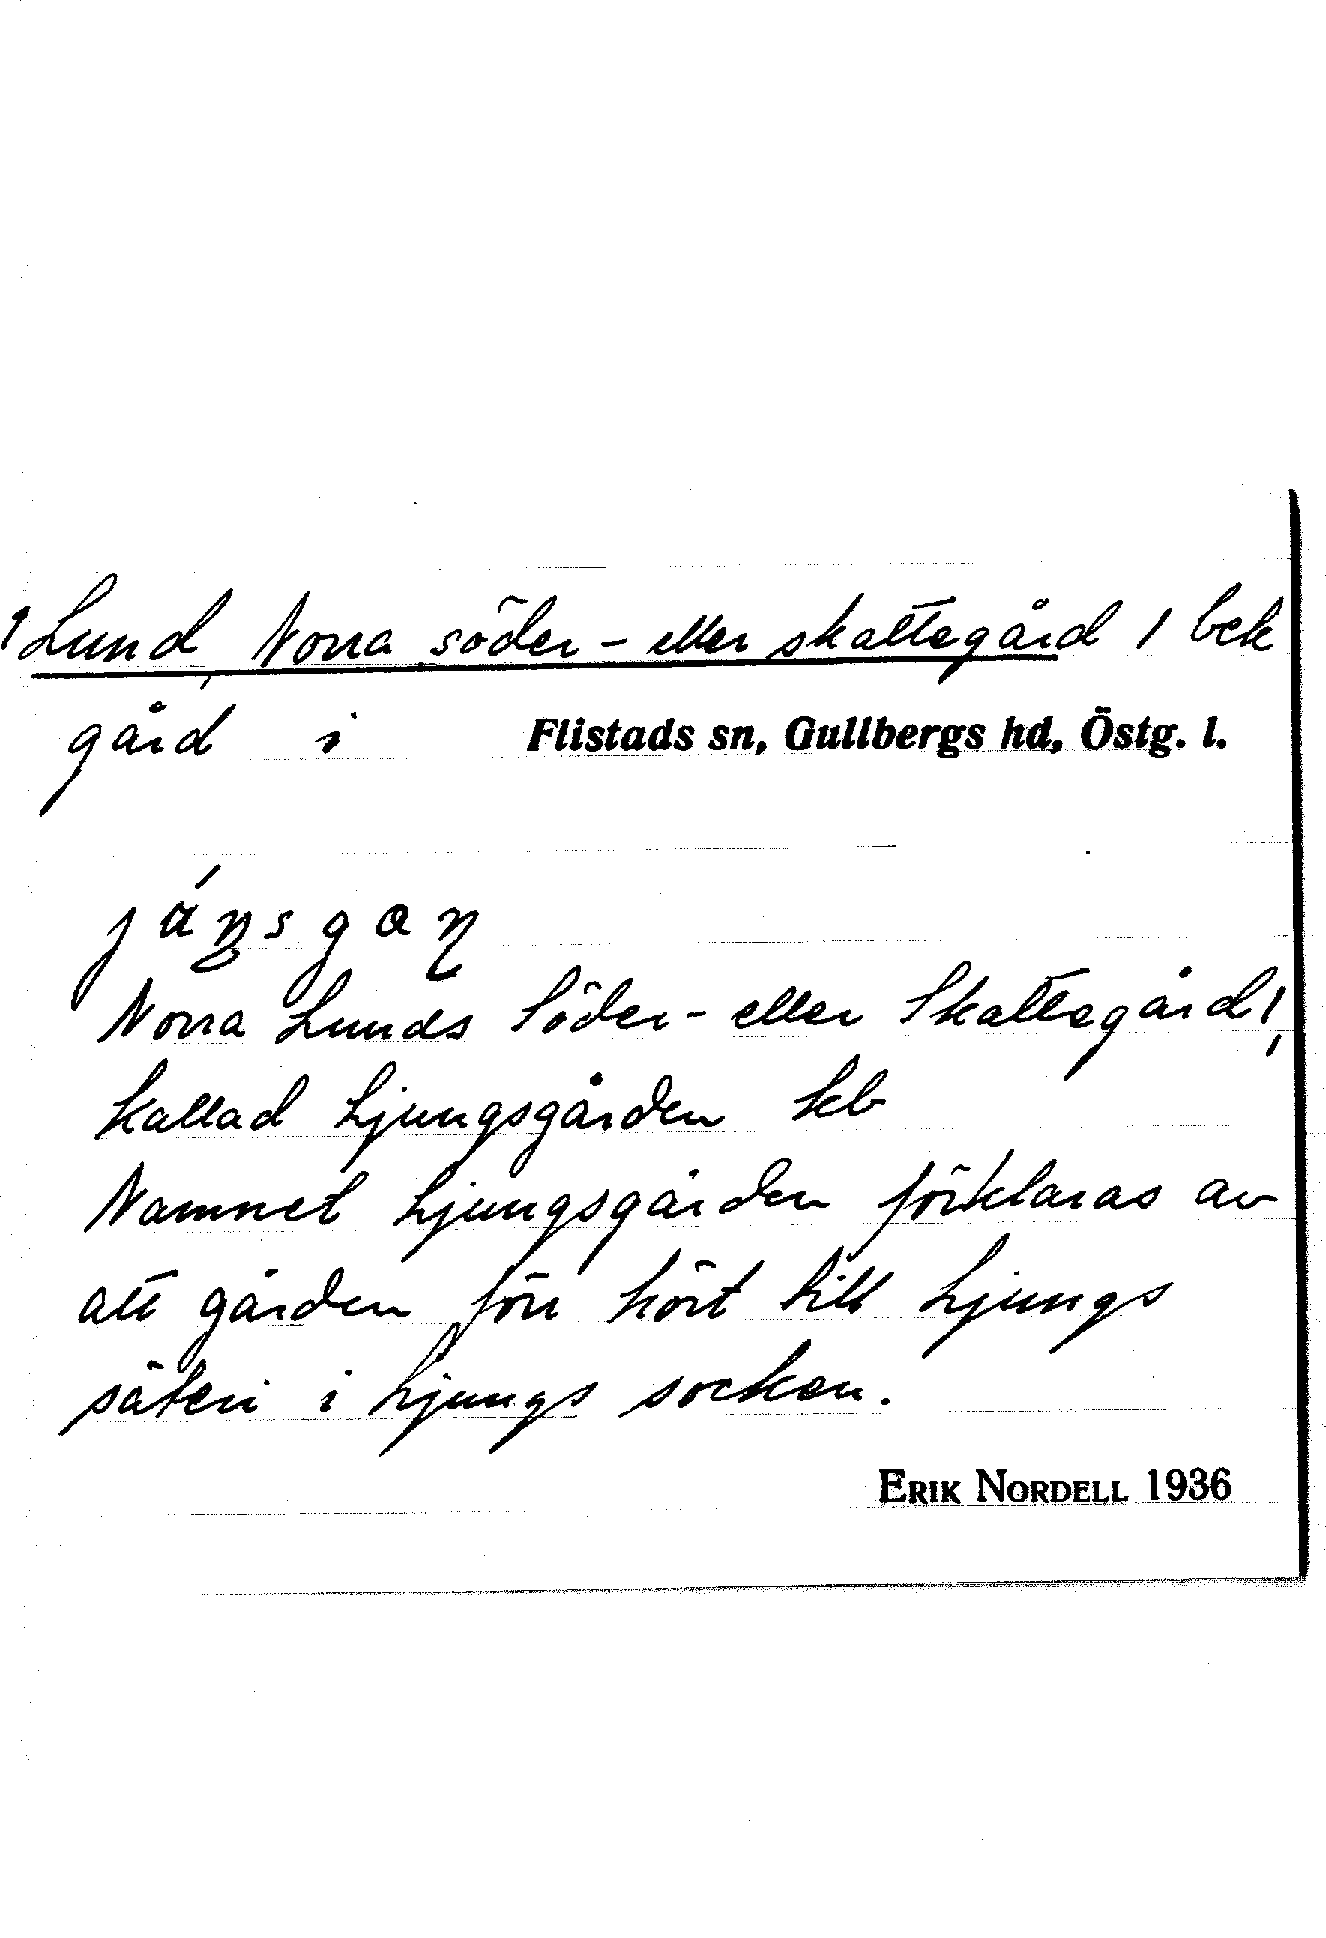 Lund, Norra söder- eller skattegård 1 bek
gård i Flistads sn, Gullbergs hd, Östg. l.
Norra Lunds Söder- eller Skattegård 1,
kallad Ljungsgården kb
Namnet Ljungsgården förklaras av
att gården förr hört till Ljungs
säteri i Ljungs socken.
ERIK NORDELL 1936